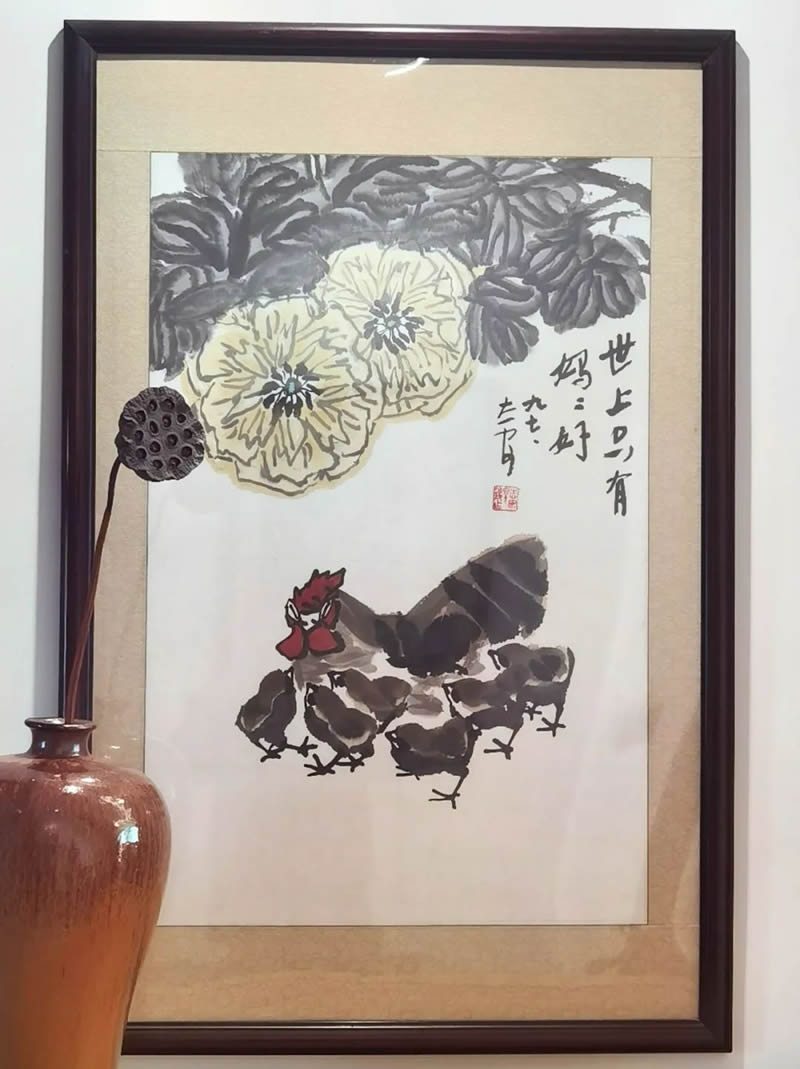 世上只有
妈〻好
九七、